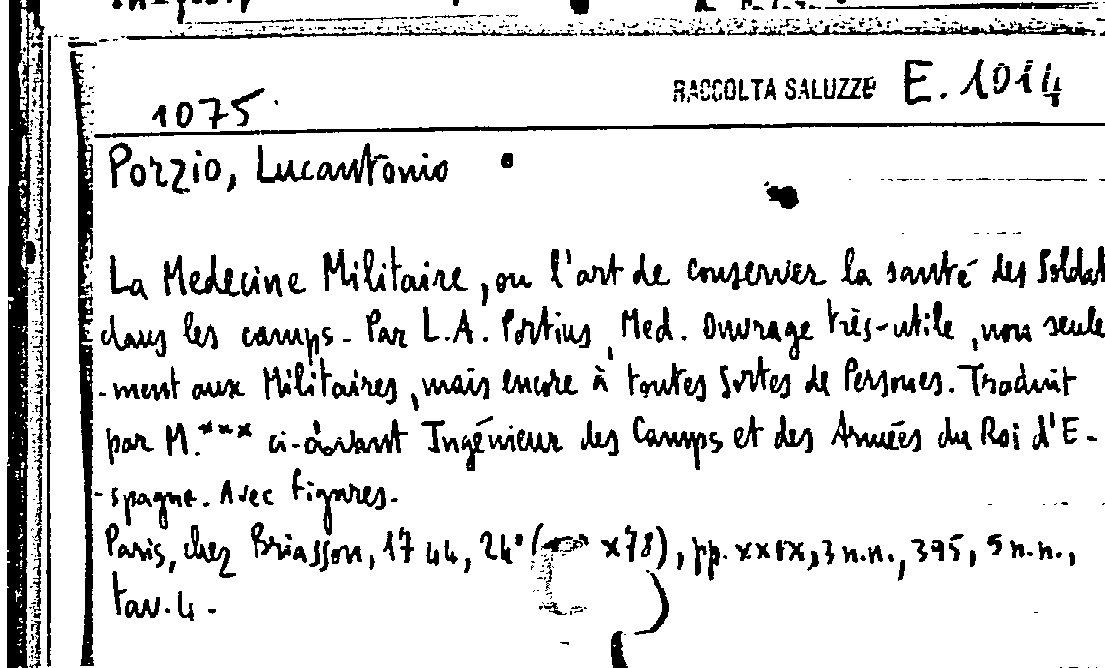 1075
RACCOLTA SALUZZO E. 1014
Porzio, Lucantonio
La Medecine Militaire, ou l'art de conserver la santé des Soldat
dans les camps. Par L.A. Portius, Med. Ouvrage très-utile, non seule
-ment aux Militaires, mais encore à toutes sortes de Persones. Traduit
par M.*** ci-devant Ingénieur des Camps et des Armées du Roi d'E-
-spagne. Avec figures.
Paris, chez Briasson, 1744, 24° ( x78), pp. xxix, 3 n.n., 395, 5 n.n.,
tav. 4.